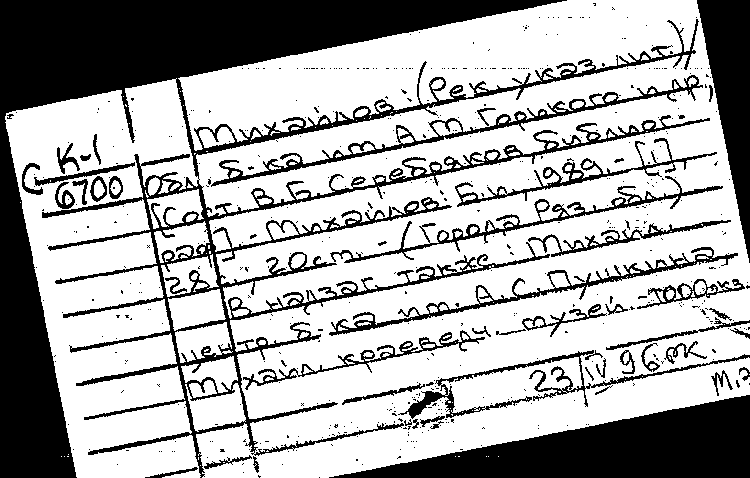 Михайлов: (Рек. указ. лит.)/
С К-1 Обл. б-ка им. А.М. Горького и др.;
6700 [Сост. В.Б. Серебряков, библиог-
раф]. - Михайлов: Б.и., 1989. - [1],
28 с.; 20 см. - (Города Ряз. обл.)
В надзаг. также: Михайл.
центр. б-ка им. А.С. Пушкина,
Михайл. краеведч. музей. - 1000 экз.
23 IV 96
М.